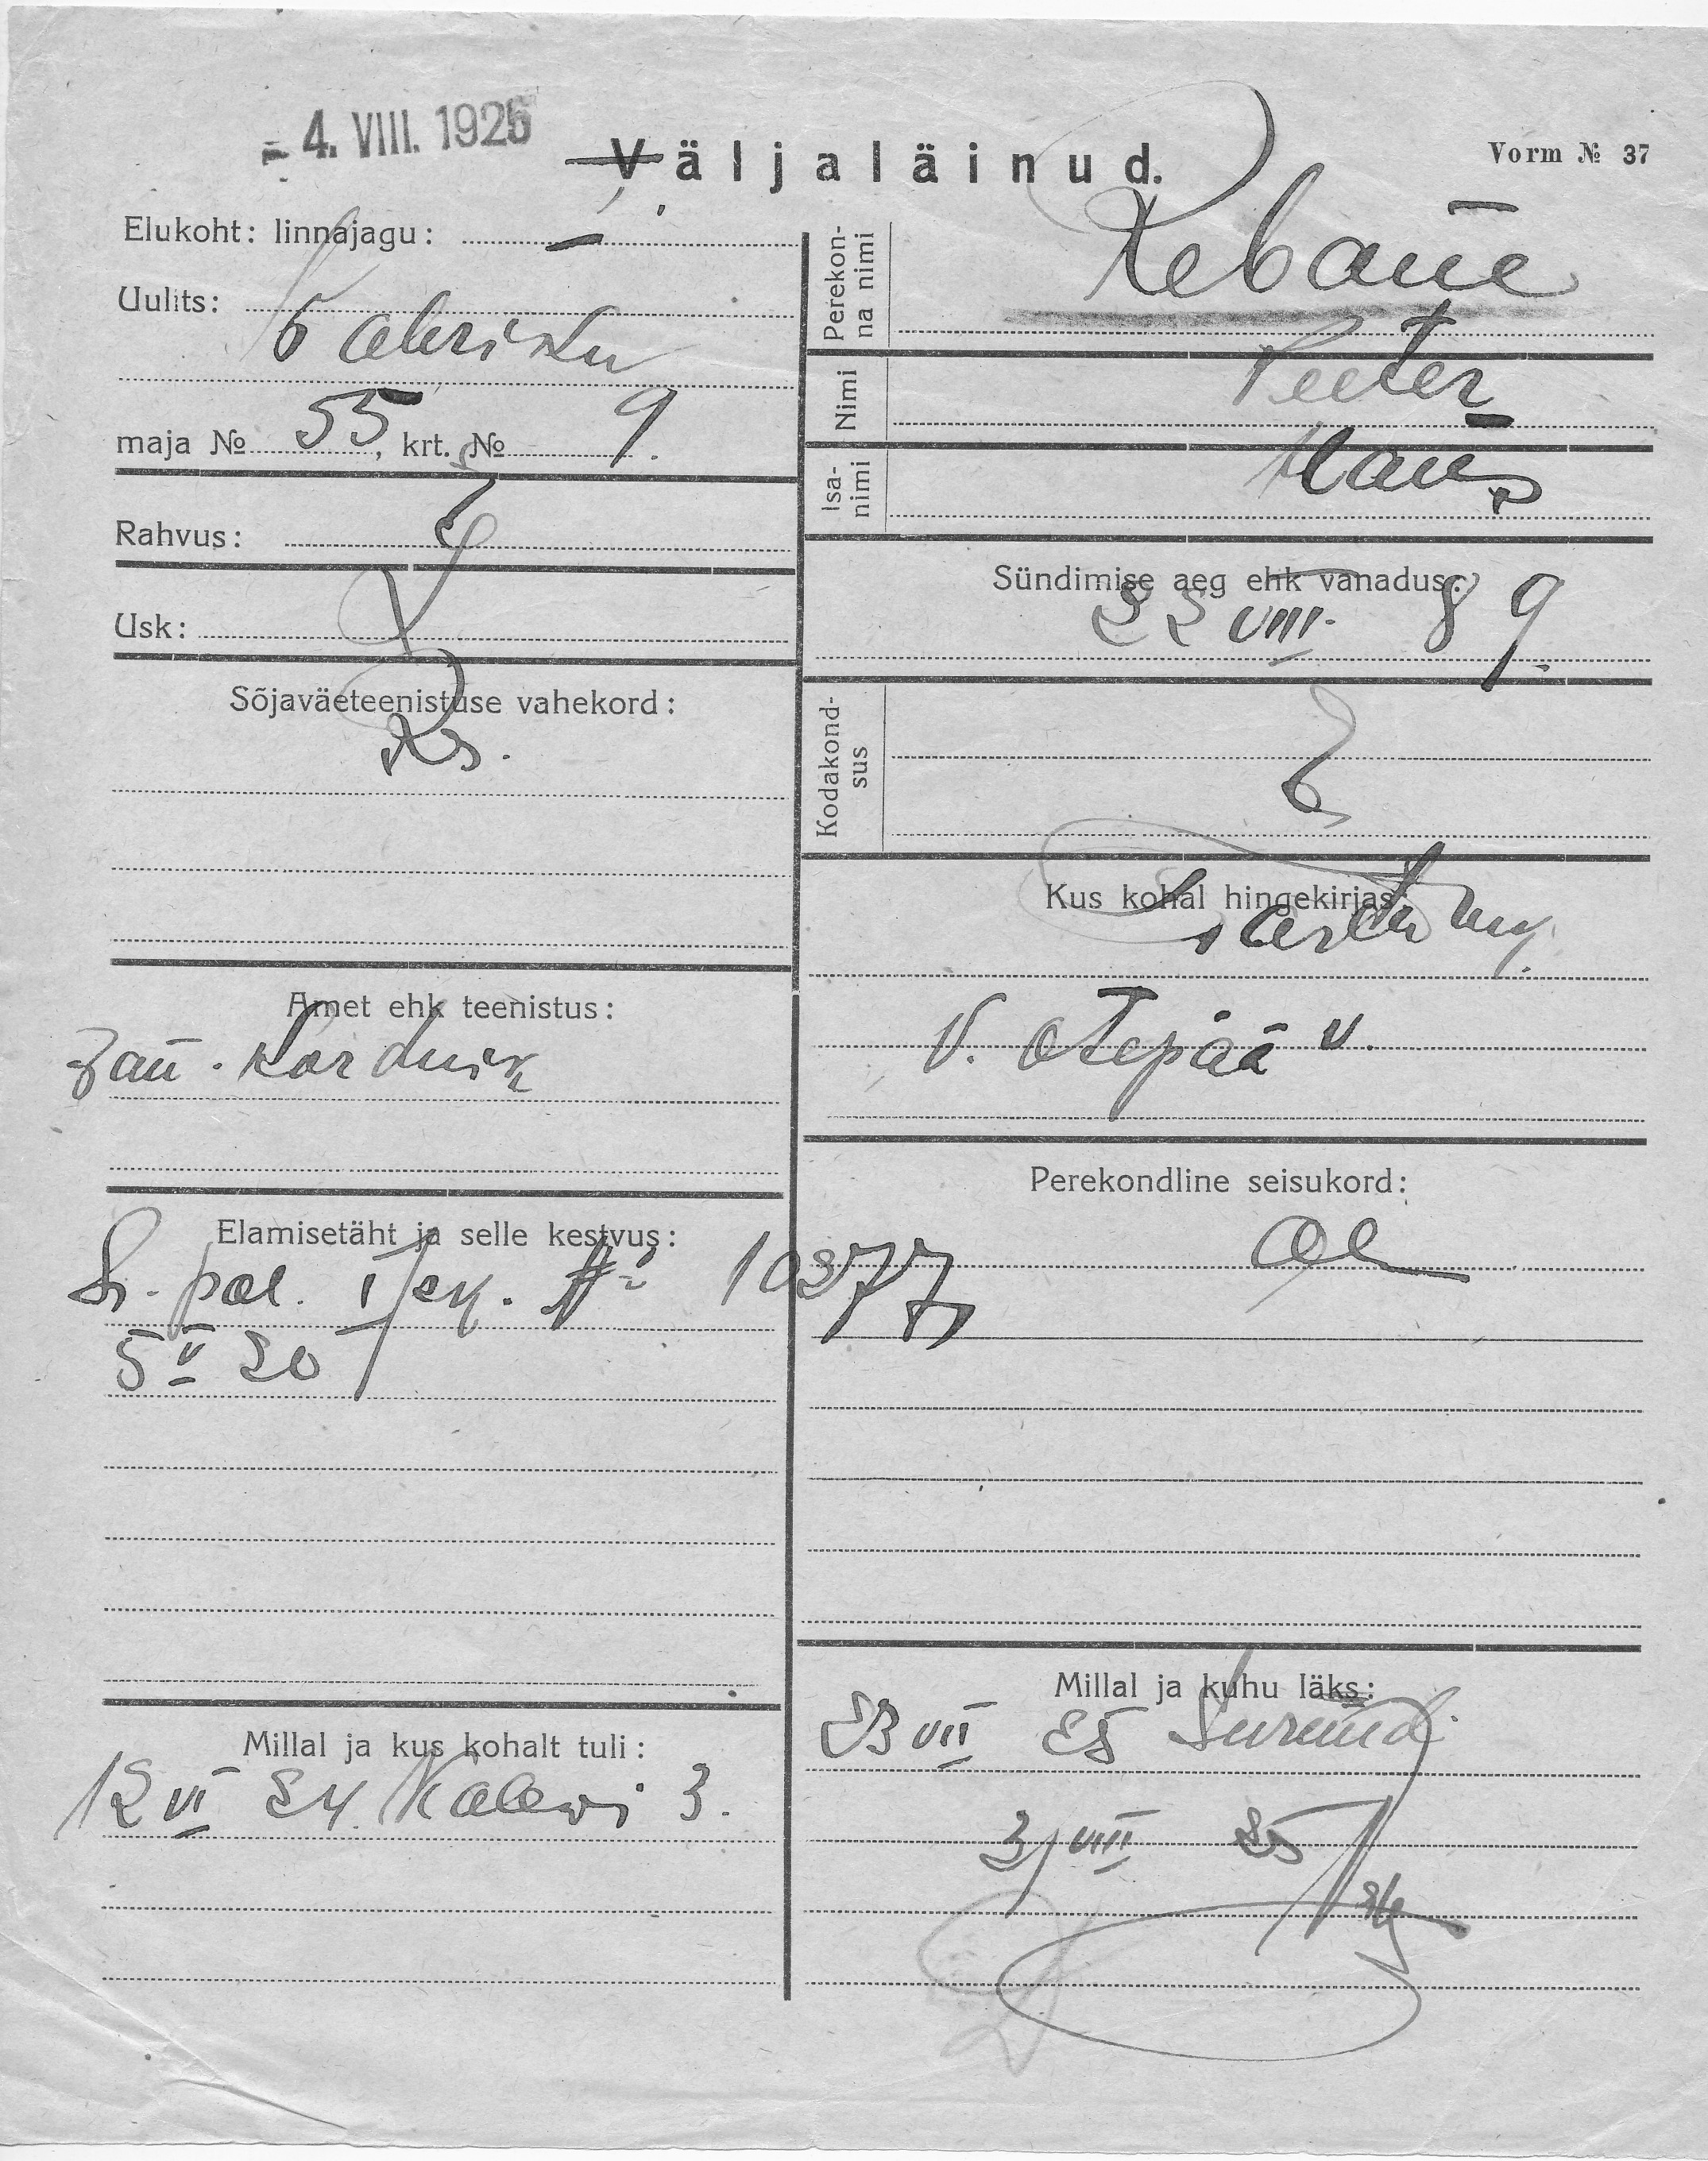 - 4. VIII. 1925
Väljaläinud.
Vorm № 37
Elukoht: linnajagu: I
Uulits:
Vabriku
maja № 55, krt. № 9.
Rahvus: E
Usk: L
Sõjaväeteenistuse vahekord:
Rs.
Amet ehk teenistus:
Žan. Kordnik
Elamisetäht ja selle kestvus:
Tr. pol. I jsk. № 10277
5 V 20
Millal ja kus kohalt tuli:
12 VI 24 Kalewi 3.
Perekonna nimi
Rebane
Nimi
Peeter
Isanimi
Hans
Sündimise aeg ehk vanadus:
22 VIII. 89.
Kodakondsus
E
Kus kohal hingekirjas:
Tartu mk.
V. Otepää v.
Perekondline seisukord:
Millal ja kuhu läks:
23 VII 25 Surnud.
3/VIII 25